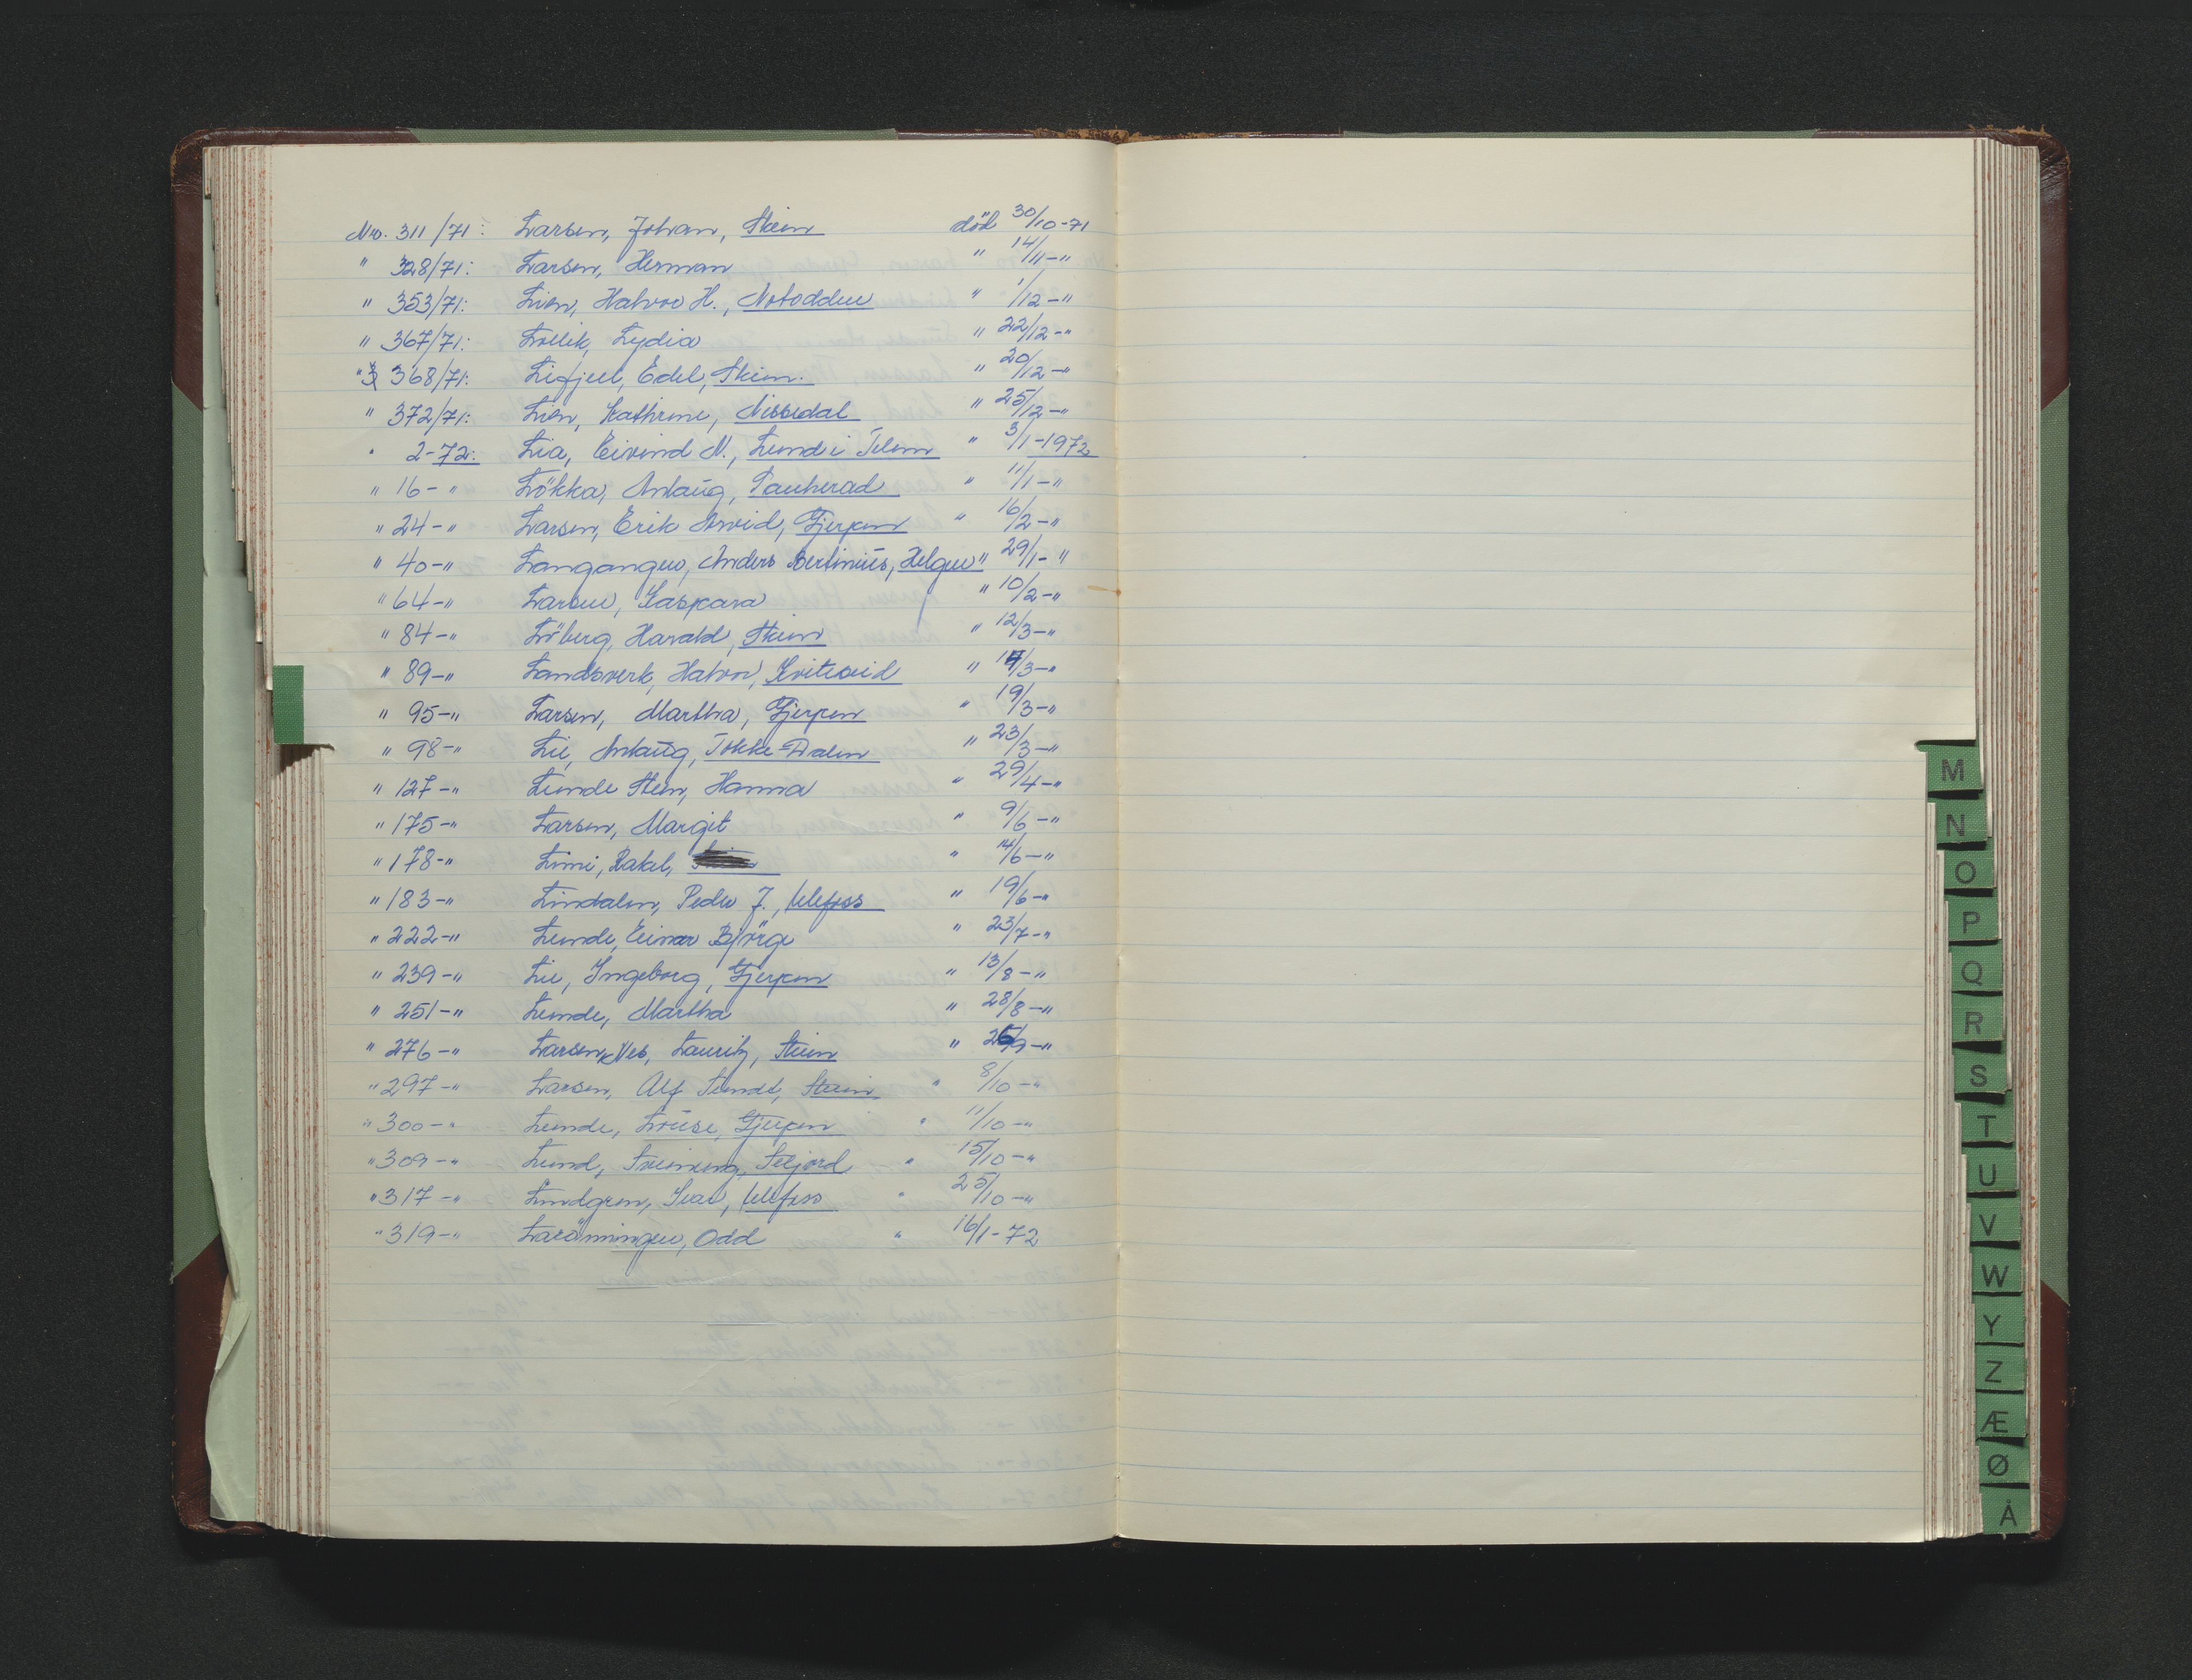 No. 311/71: Larsen, Johan, Skien död 30/10-71
" 328/71: Larsen, Herman " 14/11-"
" 353/71: Lien, Halvor H., Notodden " 1/12-"
" 367/71: Lydia " 22/12-"
" 368/71: Lifjell, Edel, Skien. " 20/12-"
" 372/71: Lien, Kathrine, Nissedal " 25/12-"
" 2-72: Lia, Eivind N., Lunde i Telem " 3/1-1972
" 16-" Lökka, Aslaug, Sauherad " 11/1-"
" 24-" Larsen, Erik Arvid, Gjerpen " 16/2-"
" 40-" Langangen, Anders Bertinius, Helgen " 29/1-"
" 64-" Larsen, Kaspara " 10/2-"
" 84-" Löberg, Harald, Skien " 12/3-"
" 89-" Landsverk, Halvor, Kviteseid " 14/3-"
" 95-" Larsen, Martha, Gjerpen " 19/3-"
" 98-" Lie, Aslaug, Tokke-Dalen " 23/3-"
" 127-" Lunde Steen, Hanna " 29/4-"
" 175-" Larsen, Margit " 9/6-"
" 178-" Limi, Rakel, " 14/6-"
" 183-" Lindalen, Peder J., Ulefoss " 19/6-"
" 222-" Lunde, Einar Björge " 23/7-"
" 239-" Lie, Ingeborg, Gjerpen " 13/8-"
" 251-" Lunde, Martha " 28/8-"
" 276-" Larsen Nes, Lauritz, Skien " 26/9-"
" 297-" Larsen, Alf Sundt, Skien " 8/10-"
" 300-" Lunde, Louise, Gjerpen " 11/10-"
" 309-" Lund, Sveinung, Seljord " 15/10-"
" 317-" Lindgren, Ivar, Ulefoss " 25/10-"
" 319-" Odd " 16/1-72
M
N
O
P
Q
R
S
T
U
V
W
Y
Z
Æ
Ø
Å